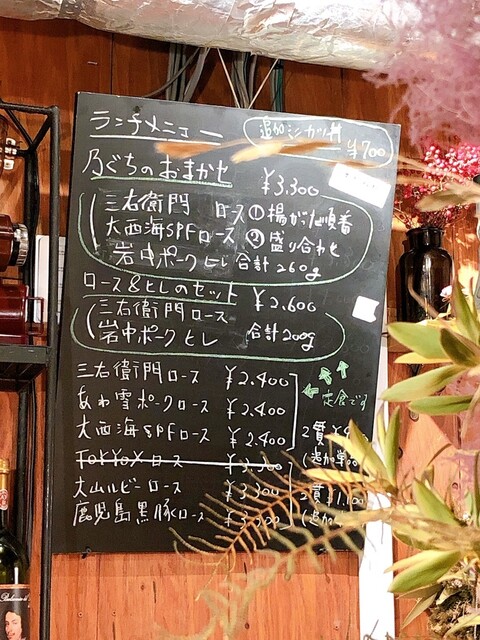 ランチメニュー
追加ミンカツ
¥700
乃ぐちのおまかせ
¥3,300
三右衛門 ロース ① 揚がった順番
大西海SPFロース ② 盛り合わせ
岩中ポークヒレ 合計260g
ロース&ヒレのセット ¥2,600
三右衛門ロース
岩中ポークヒレ 合計200g
三右衛門ロース ¥2,400
あわ雪ポークロース ¥2,400
大西海SPFロース ¥2,400
定食です
2貫
(追加単品
TOKYOXロース ¥3,300
大山ルビーロース ¥3,300
鹿児島黒豚ロース ¥3,300
2貫 ¥1,100
(追加